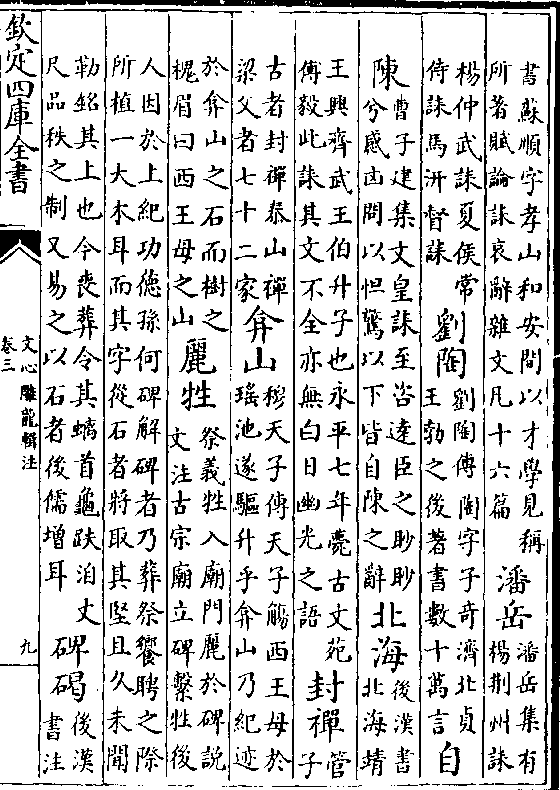 書蘇順字孝山和安間以才學見稱
所著賦論誄哀辭雜文凡十六篇
潘岳
潘岳集有
楊荆州誄
楊仲武誄夏侯常
侍誄馬汧督誄
劉陶
劉陶傳陶字子奇濟北貞
王勃之後著書數十萬言
自
陳
曹子建集文皇誄至咨達臣之眇眇
兮感凶問以怛驚以下皆自陳之辭
北海
後漢書
北海靖
王興齊武王伯升子也永平七年薨古文苑
傅毅此誄其文不全亦無白日幽光之語
封禪
管
子
古者封禪泰山禪
梁父者七十二家
弇山
穆天子傳天子觴西王母於
瑤池遂驅升乎弇山乃紀迹
於弇山之石而樹之
槐眉曰西王母之山
麗牲
祭義牲入廟門麗於碑說
文注古宗廟立碑繫牲後
人因於上紀功德孫何碑解碑者乃葬祭饗聘之際
所植一大木耳而其字從石者將取其堅且久未聞
勒銘其上也今喪葬令其螭首龜趺洎丈
尺品秩之制又易之以石者後儒增耳
碑碣
後漢
書注
欽定四庫全書
文心雕龍輯注
卷三
九